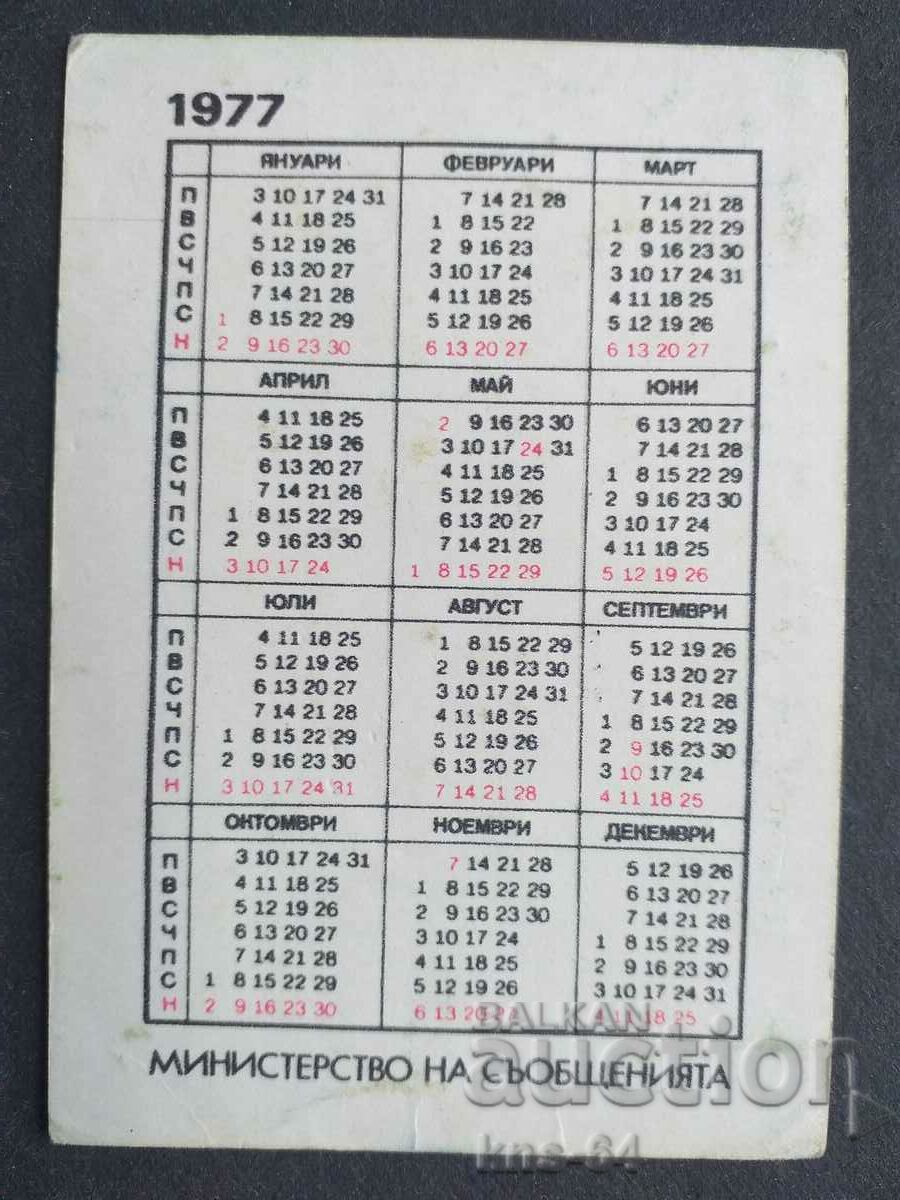 1977
ЯНУАРИ ФЕВРУАРИ МАРТ
П 3 10 17 24 31 7 14 21 28 7 14 21 28
В 4 11 18 25 1 8 15 22 1 8 15 22 29
С 5 12 19 26 2 9 16 23 2 9 16 23 30
Ч 6 13 20 27 3 10 17 24 3 10 17 24 31
П 7 14 21 28 4 11 18 25 4 11 18 25
С 1 8 15 22 29 5 12 19 26 5 12 19 26
Н 2 9 16 23 30 6 13 20 27 6 13 20 27
АПРИЛ МАЙ ЮНИ
П 4 11 18 25 2 9 16 23 30 6 13 20 27
В 5 12 19 26 3 10 17 24 31 7 14 21 28
С 6 13 20 27 4 11 18 25 1 8 15 22 29
Ч 7 14 21 28 5 12 19 26 2 9 16 23 30
П 1 8 15 22 29 6 13 20 27 3 10 17 24
С 2 9 16 23 30 7 14 21 28 4 11 18 25
Н 3 10 17 24 1 8 15 22 29 5 12 19 26
ЮЛИ АВГУСТ СЕПТЕМВРИ
П 4 11 18 25 1 8 15 22 29 5 12 19 26
В 5 12 19 26 2 9 16 23 30 6 13 20 27
С 6 13 20 27 3 10 17 24 31 7 14 21 28
Ч 7 14 21 28 4 11 18 25 1 8 15 22 29
П 1 8 15 22 29 5 12 19 26 2 9 16 23 30
С 2 9 16 23 30 6 13 20 27 3 10 17 24
Н 3 10 17 24 31 7 14 21 28 4 11 18 25
ОКТОМВРИ НОЕМВРИ ДЕКЕМВРИ
П 3 10 17 24 31 7 14 21 28 5 12 19 26
В 4 11 18 25 1 8 15 22 29 6 13 20 27
С 5 12 19 26 2 9 16 23 30 7 14 21 28
Ч 6 13 20 27 3 10 17 24 1 8 15 22 29
П 7 14 21 28 4 11 18 25 2 9 16 23 30
С 1 8 15 22 29 5 12 19 26 3 10 17 24 31
Н 2 9 16 23 30 6 13 20 27 4 11 18 25
МИНИСТЕРСТВО НА СЪОБЩЕНИЯТА
BALKAN
auction
kns-64